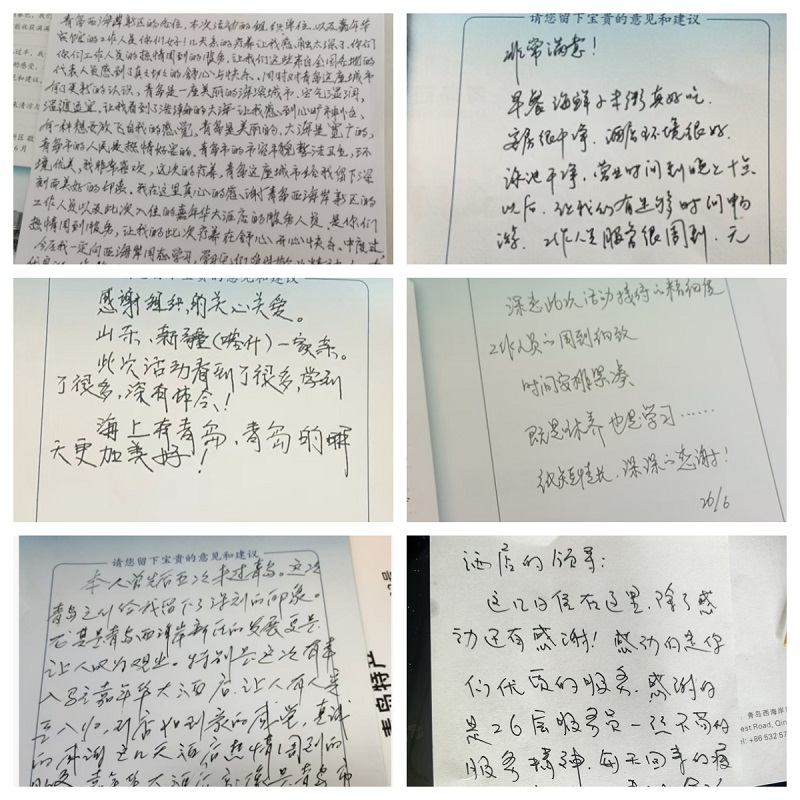 青岛西海岸新区的
工作人员你们好!
你们工作人员的热情周到的服务,让我们这些来自全国各地的
代表人员感到了真正的舒心与快乐。同时对青岛这座城市
有了更新的认识,青岛是一座美丽的海滨城市,空气湿润,
温度适宜,让我看到了浩瀚的大海,让我感到心旷神怡,
有一种想要放飞自我的感觉,青岛是美丽的,大海是宽广的,
青岛市的人民是热情好客的。青岛市的市容市貌整洁卫生,环
境优美,我非常喜欢,这次的疗养,青岛这座城市给我留下深
刻而美好的印象。我在这里真心的感谢青岛西海岸新区的
工作人员以及此次入住的嘉年华大酒店的服务人员,是你们
热情周到服务,让我的此次疗养在舒心、开心快乐、中度过
请您留下宝贵的意见和建议
非常满意!
早餐海鲜小米粥真好吃.
客房很干净.酒店环境很好.
泳池干净,营业时间到晚上十点
以后,让我们有足够时间畅
游.工作人员服务很周到.无
感谢组织的关心关爱。
山东、新疆(喀什)一家亲。
此次活动看到了很多,学到
了很多,深有体会!
海上有青岛,青岛的明
天更加美好!
深感此次活动接待之精细度
工作人员之周到细致
时间安排紧凑
既是休养也是学习……
纸短情长,深深之感谢!
26/6
请您留下宝贵的意见和建议
本人曾先后五次来过青岛。这次
青岛之行给我留下了深刻的印象。
尤其是青岛西海岸新区的发展更是
让人叹为观止。特别是这次有幸
入住嘉年华大酒店,让人有人宾
至如归,到店如到家的感觉,真诚
的感谢这几天酒店热情周到的
青岛特产
酒店的领导:
这几日住在这里,除了感
动还有感谢!感动的是你
们优质的服务,感谢的
是26层服务员一丝不苟的
服务精神,每天回来的
青岛西海岸
est Road, Qin
el: +86 532 57